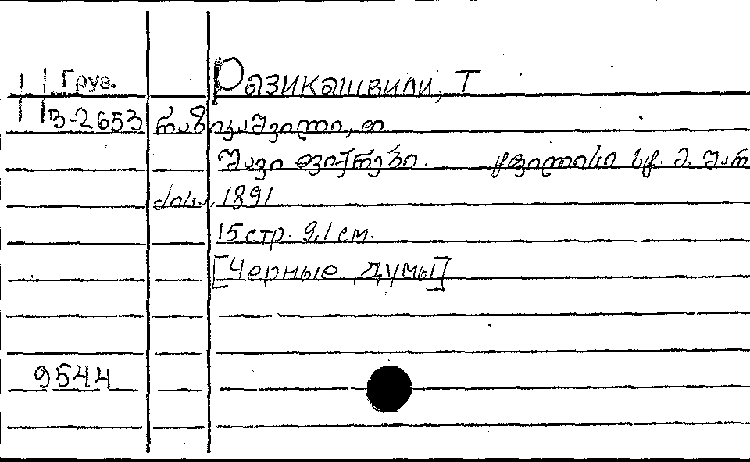 Груз. Разикашвили, Т
З-2653 რაზიკაშვილი, თ
შავი ფიქრები. ტფილისი სტ. მ. შარ
ძისა, 1891
15 стр. 9,1 см.
[Черные думы]
9544